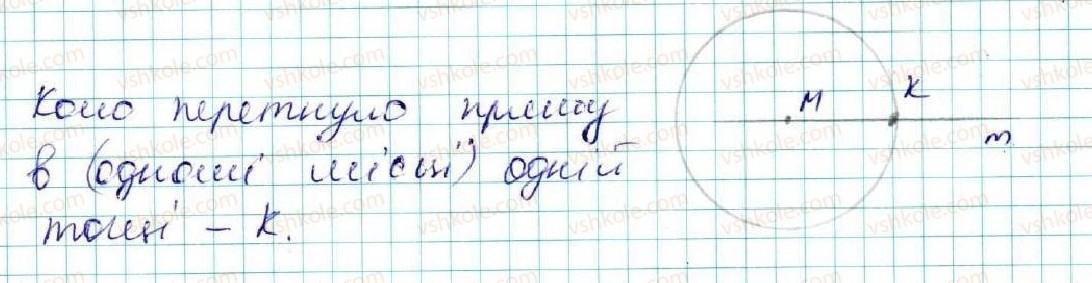 Коло перетнуло пряму
в (одному місці) одній
точці – К.
M
K
m
vshkole.com